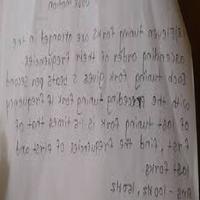 wave motion
Eleven tuning forks are arranged in the
ascending order of their frequencies
Each tuning fork gives 5 beats per second
to the preceding tuning fork if frequency
of last tuning fork is 1.5 times that of
first, find the frequencies of first and
last forks
Ans - 100Hz, 150Hz